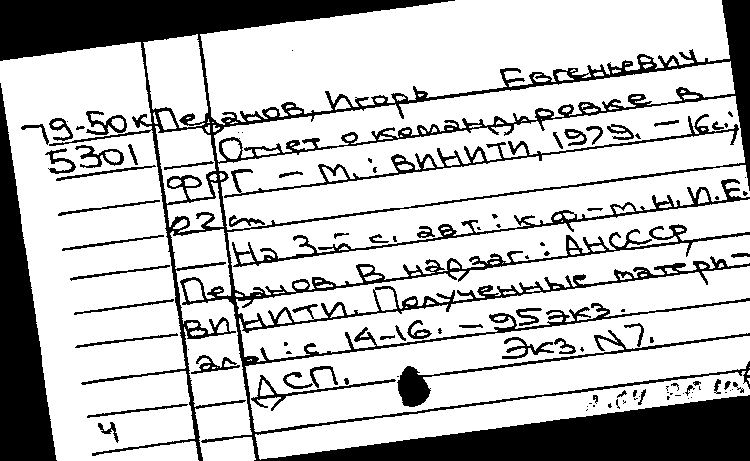 79-50к Педанов, Игорь Евгеньевич.
5301 Отчет о командировке в
ФРГ. – М.: ВИНИТИ, 1979. – 16с.;
02 ст.
На 3-й с. авт.: к.ф.-м.н. И.Е.
Педанов. В надзаг.: АНСССР,
ВИНИТИ. Полученные матери-
алы: с. 14-16. – 95 экз.
ДСП. Экз. N7.
ч